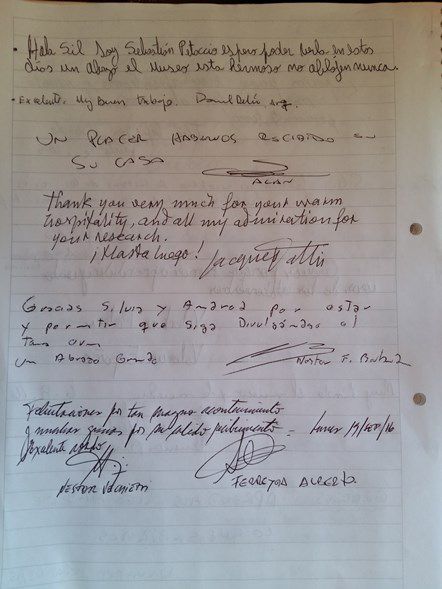 • Hola Sil Soy Sebastián Petoccio espero poder verla en estos
días un Abrazo el Museo esta hermoso no aflojen nunca.
• Excelente. Muy buen trabajo. Daniel
UN PLACER HABERNOS RECIBIDO EN
SU CASA
ALAN
Thank you very much for your warm
hospitality, and all my admiration for
your research.
¡Hasta luego!
Gracias Silvia y Andrea por estar
y permitir que siga Divulgándose el
Tema ovni
Un Abrazo Grande
Nestor F.
Felicitaciones por tan magno acontecimiento
y muchas gracias por su calido recibimiento =
Excelente
NESTOR
FERREYRA ALBERTO.